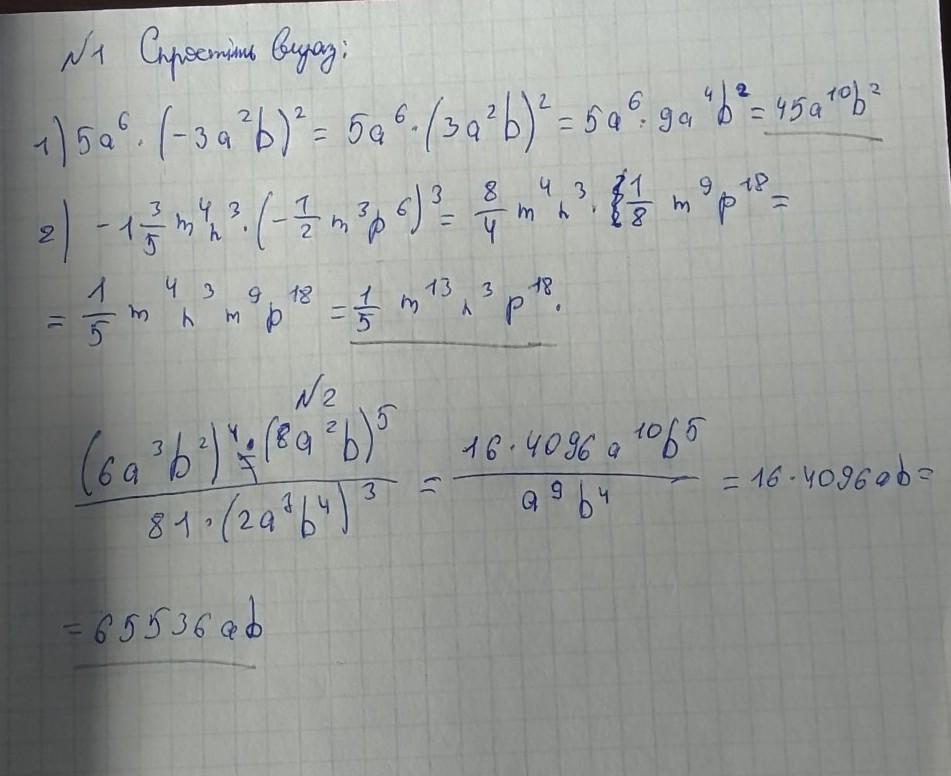 №1 Спростіть вираз:
1) 5a⁶ · (-3a²b)² = 5a⁶ · (3a²b)² = 5a⁶ · 9a⁴b² = 45a¹⁰b²
2) -1 3/5 m⁴n³ · (-1/2 m³p⁶)³ = 8/4 m⁴n³ · 1/8 m⁹p¹⁸ =
= 1/5 m⁴n³m⁹p¹⁸ = 1/5 m¹³n³p¹⁸.
№2
(6a³b²)⁴ · (8a²b)⁵ / 81 · (2a³b⁴)³ = 16·4096a¹⁰b⁵ / a⁹b⁴ = 16·4096ab =
= 65536ab